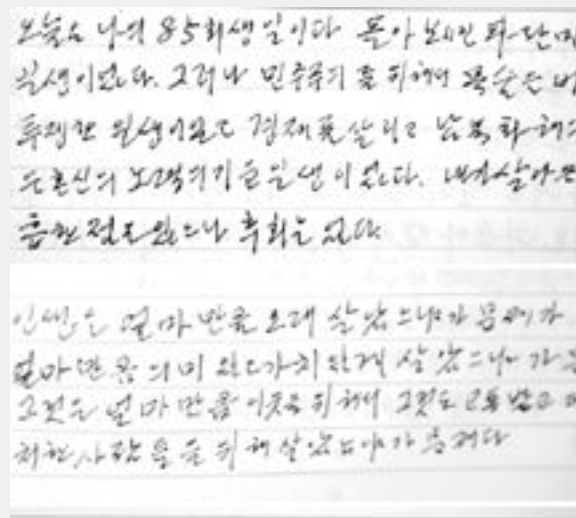 오늘은 나의 85회생일이다 돌아보면 파란만
일생이었다. 그러나 민주주의를 위해서 목숨은
투쟁한 일생이었고 경제를 살리고 남북화해
혼신의 노력의 일생이었다. 내가 살아온
한 점도 있으나 후회는 없다
인생은 얼마만큼 오래 살았느냐가 문제가
얼마만큼 의미있고 가치있게 살았느냐가
그것은 얼마만큼 이웃을 위해서 그것도 고통받고
처한 사람들을 위해 살았느냐가 문제다